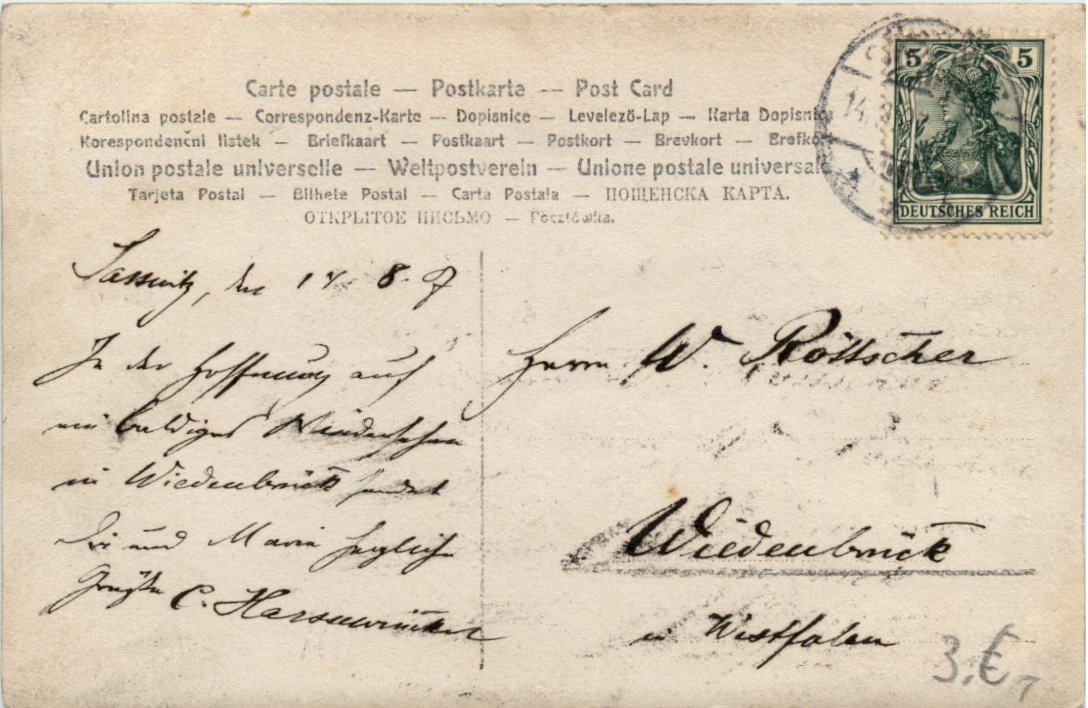 Carte postale — Postkarte — Post Card
Cartolina postale — Correspondenz-Karte — Dopisnice — Levelező-Lap — Karta Dopisnica
Korespondenční listek — Briefkaart — Postkaart — Postkort — Brevkort — Brefko
Union postale universelle — Weltpostverein — Unione postale universale
Tarjeta Postal — Bilhete Postal — Carta Postala — ПОЩЕНСКА КАРТА.
ОТКРЫТОЕ ПИСЬМО — Pocztówka.
5 5
DEUTSCHES REICH
14. 8
Sassnitz, den 14 8. 7
In der Hoffnung auf
ein baldiges Wiedersehen
in Wiedenbrück sendet
Dir und Maria herzliche
Grüße C.
Herrn W. Röttscher
Wiedenbrück
in Westfalen
3.€